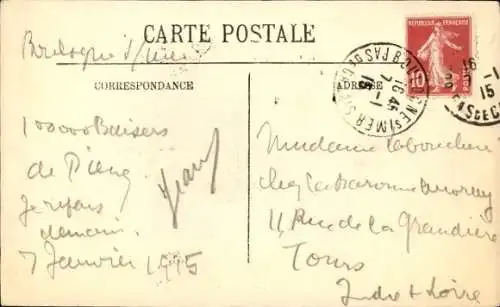 CARTE POSTALE
Boulogne s/mer
CORRESPONDANCE
ADRESSE
REPUBLIQUE FRANÇAISE
10
POSTES
BOULOGNE S/MER PAS DE C
16 45
7 - 1
15
16
-1
15
100000 Baisers
de
Jean
Je repars
demain.
7 Janvier 1915
Madame Labouchere
chez la Baronne
11 Rue de la Grandière
Tours
Indre & Loire